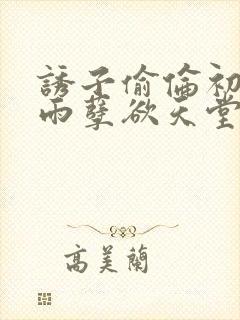 誘子偷倫初
雨孽欲天堂
高美蘭